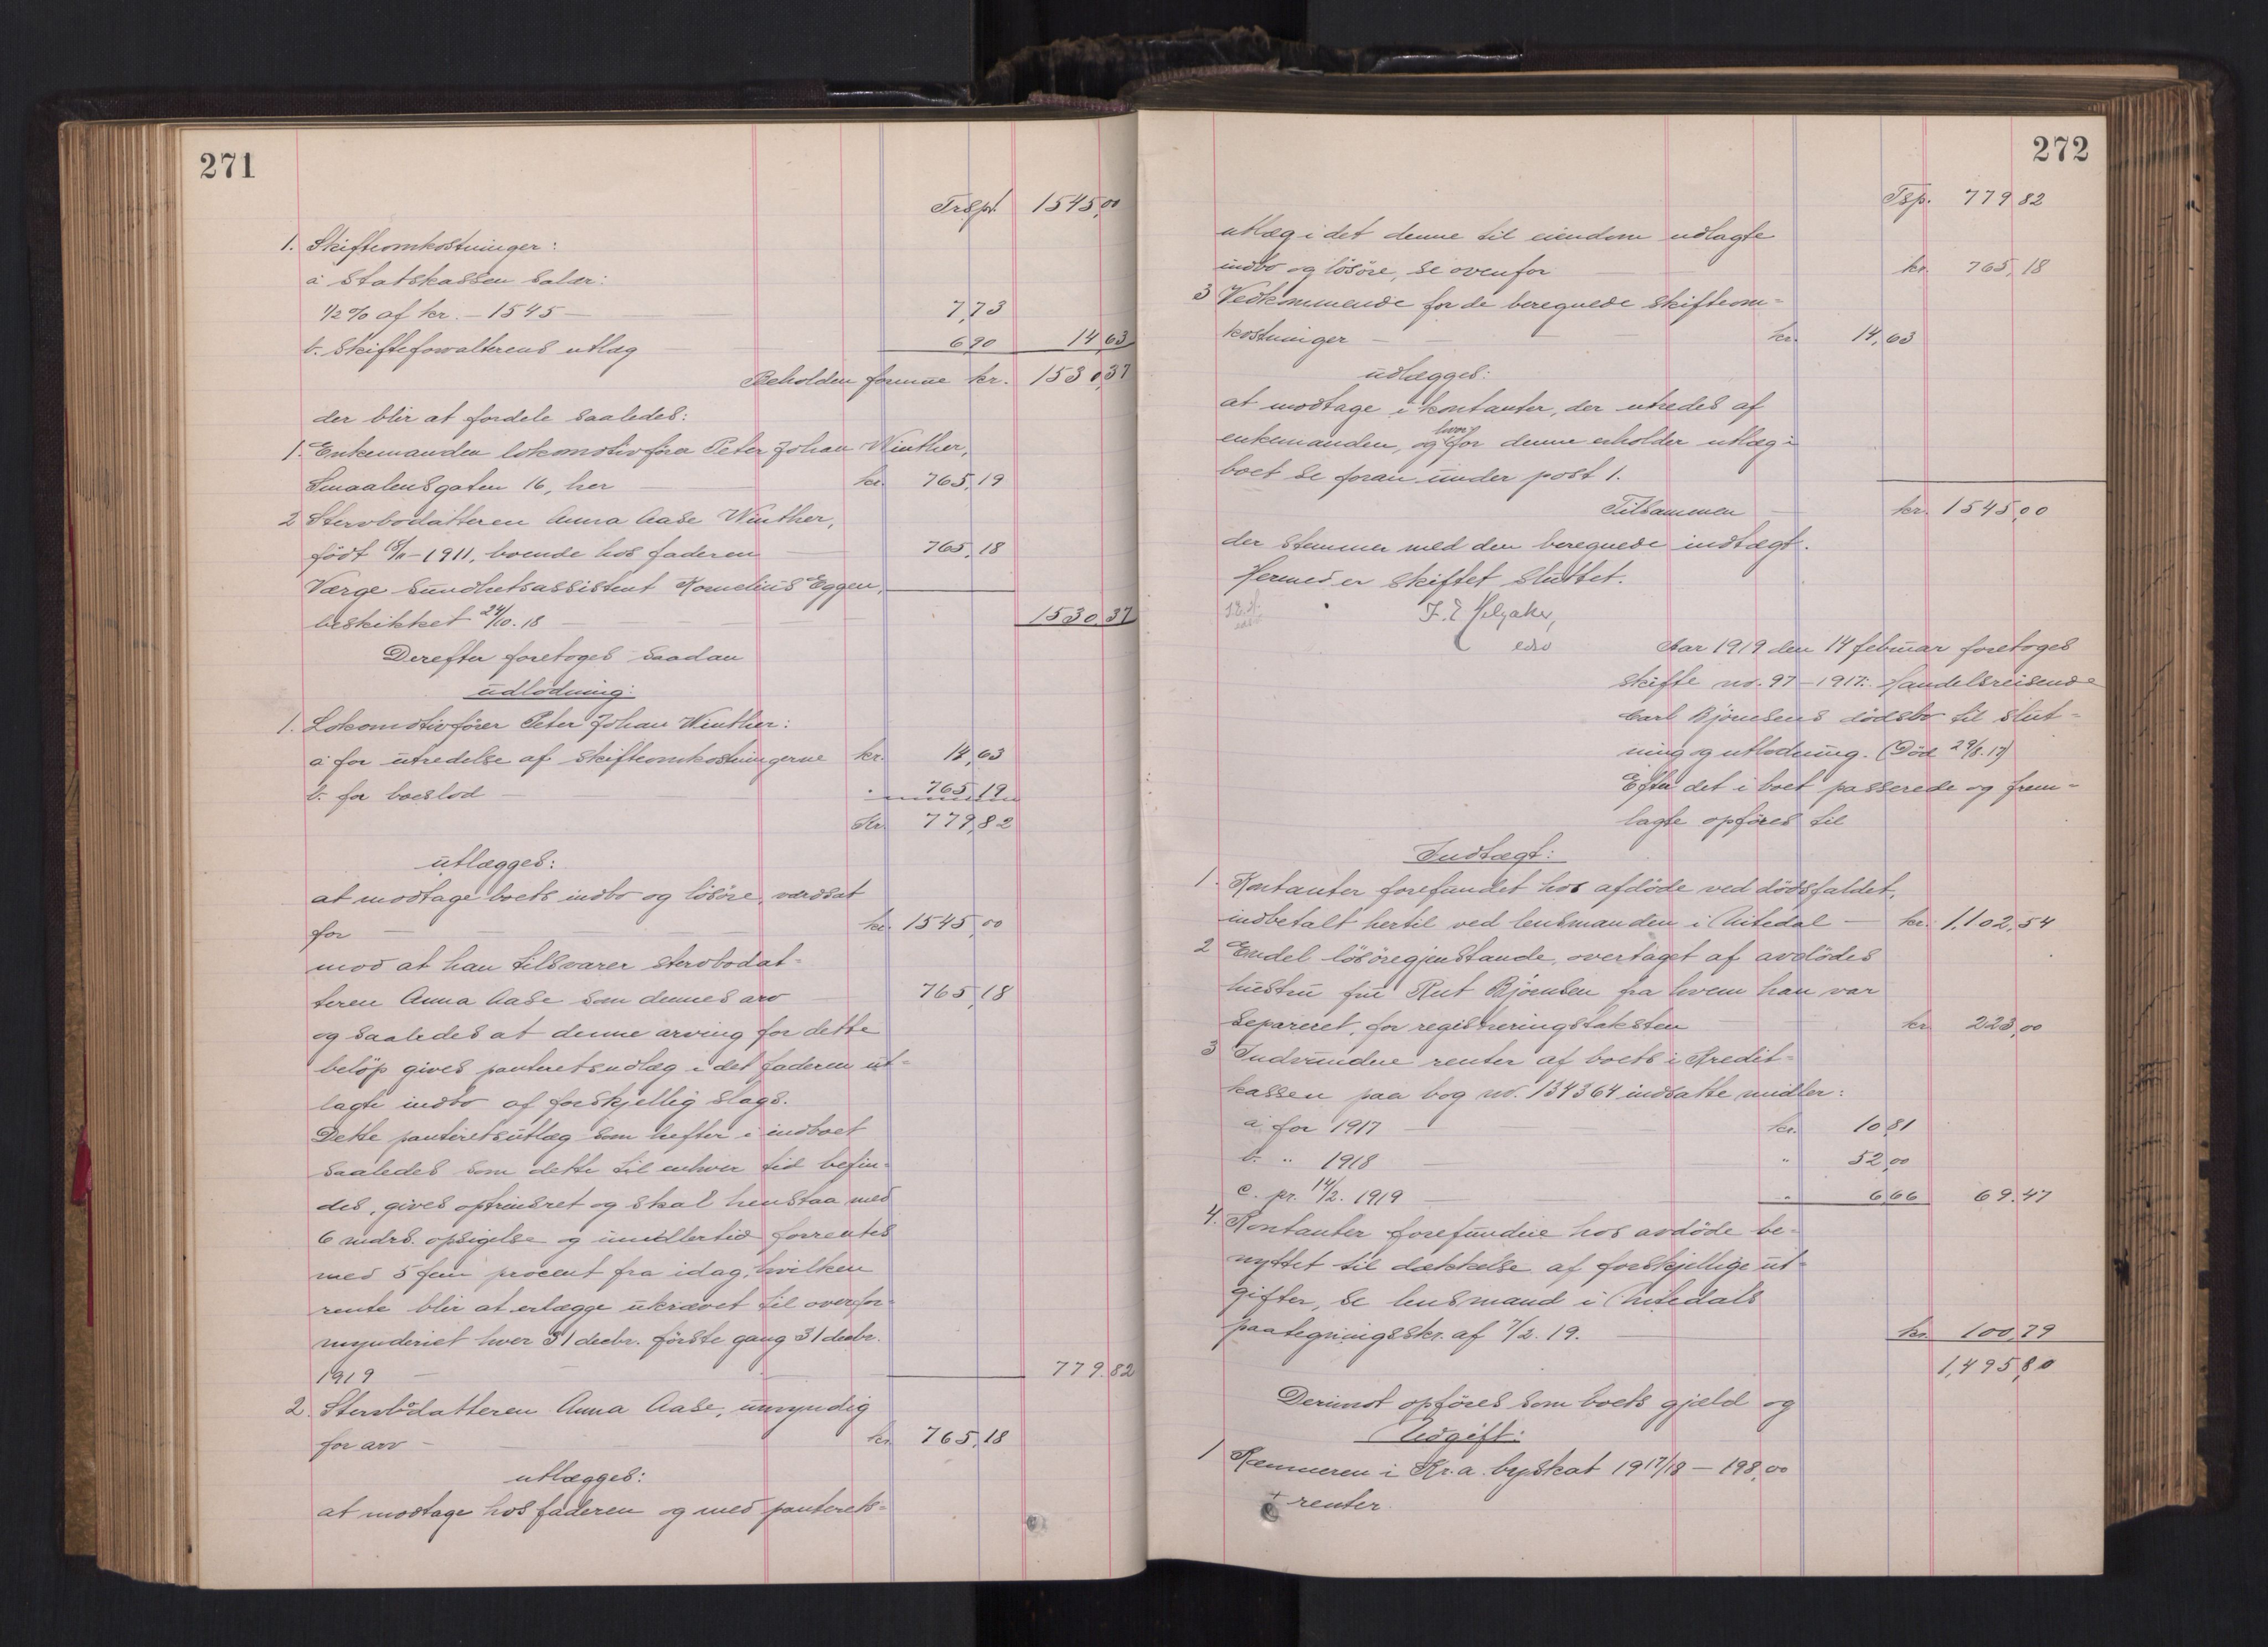 271
Trspt. 1545,00
1. Skifteomkostninger:
a Statskassen salær:
1/2 % af kr. - 1545 — 7,73
b. Skifteforvalterens utlæg 6,90 14,63
Beholden formue kr. 1530,37
der blir at fordele saaledes:
1. Enkemanden lokomotivfører Peter Johan Winther,
Smaalensgaten 16, her — kr. 765,19
2 Stervbodatteren Anna Aase Winther,
født 18/11 - 1911, boende hos faderen — 765,18
Værge sundhetsassistent Kornelius Eggen,
beskikket 24/10. 18 — 1530,37
Derefter foretoges saadan
udlodning:
1. Lokomotivfører Peter Johan Winther:
a for utredelse af skifteomkostningerne kr. 14,63
b. for boeslod — " 765,19
Kr. 779,82
utlægges:
at modtage boets indbo og løsøre, værdsat
for — kr. 1545,00
mod at han tilsvarer stervbodat-
teren Anna Aase som dennes arv 765,18
og saaledes at denne arving for dette
beløp gives panteretsudlæg i det faderen ut-
lagte indbo af forskjellig slags.
Dette panteretsutlæg som hefter i indboet
saaledes som dette til enhver tid befin-
des, gives optrinsret og skal henstaa med
6 mdrs. opsigelse og imidlertid forrentes
med 5 fem procent fra idag, hvilken
rente blir at erlægge ukrævet til overfor-
mynderiet hver 31 decbr. første gang 31 decbr.
1919 — 779.82
2. Stervbodatteren Anna Aase, umyndig
for arv — kr. 765,18
utlægges:
at modtage hos faderen og med panterets-
272
Tsp. 779 82
utlæg i det denne til eiendom udlagte
indbo og løsøre, se ovenfor kr. 765,18
3 Vedkommende for de beregnede skifteom-
kostninger — kr. 14,63
udlægges:
at modtage i kontanter, der utredes af
enkemanden, og hvorfor denne erholder utlæg i
boet se foran under post 1.
Tilsammen — kr. 1545,00
der stemmer med den beregnede indtægt.
Hermed er skiftet sluttet.
edsv
Aar 1919 den 14 februar foretoges
skifte no. 97 - 1917: Handelsreisende
Carl Bjørnsens dødsbo til slut-
ning og utlodning. (Død 29/8. 17)
Efter det i boet passerede og frem-
lagte opføres til
Indtægt:
1. Kontanter forefundet hos afdøde ved dødsfaldet,
indbetalt hertil ved lensmanden i Nitedal — kr. 1,102,54
2 Endel løsøregjenstande, overtaget af avdødes
hustru fru Rut Bjørnsen fra hvem han var
separeret, for registreringstaksten kr. 223,00
3 Indvundne renter af boets i Kredit-
kassen paa bog no. 134364 indsatte midler:
a for 1917 — kr. 10,81
b. " 1918 — " 52,00
c. pr. 14/2. 1919 — " 6,66 69.47
4. Kontanter forefundne hos avdøde be-
nyttet til dækkelse af forskjellige ut-
gifter, se lensmand i Nitedals
paategningsskr. af 7/2. 19. — kr. 100,79
1,495,80
Derimot opføres som boets gjeld og
Udgift:
1 Kemneren i Kr.a. byskat 1917/18 — 198,00
+ renter.